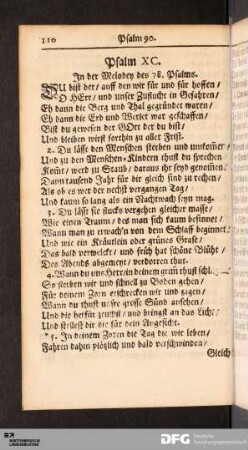 110 Psalm 90.
Psalm XC.
In der Melodey des 78. Psalms.
DU bist der/ auff den wir für und für hoffen/
O HErr/ und unser Zuflucht in Gefahren/
Eh dann die Berg und Thal gegründet waren/
Eh dann die Erd und Wetter war geschaffen/
Bist du gewesen der GOtt der du bist/
Und bleiben wirst forthin zu aller Frist.
2. Du lässt den Menschen sterben und umkommen/
Und zu den Menschen-Kindern thust du sprechen
Komt/ werd zu Staub/ daraus ihr seyd genommen.
Dann tausend Jahr für dir gleich sind zu rechen/
Als ob es wer der nechst vergangen Tag/
Und kaum so lang als ein Nachtwach seyn mag.
3. Du läst sie stucks vergehen gleicher masse/
Wie einen Traum/ des man sich kaum besinnet/
Wann man zu erwach'n von dem Schlaff beginnet
Und wie ein Kräutlein oder grünes Grase/
Das bald verwelckt/ und früh hat schöne Blüht/
Des Abends abgemeyt/ verdorren thut.
4. Wann du uns Herr in deinem grim thust schl.
So sterben wir und schnell zu Boden gehen/
Für deinem Zorn erschrecken wir und zagen/
Wann du thust unsre grosse Sünd ansehen/
Und die herfür zeuchst/ und bringst an das Licht/
Und stellest dir die für dein Angesicht.
5. In deinem Zoren die Tag die wir leben/
Fahren dahin plötzlich und bald verschwinden/
Gleich
DFG Deutsche
Forschungsgemeinschaft